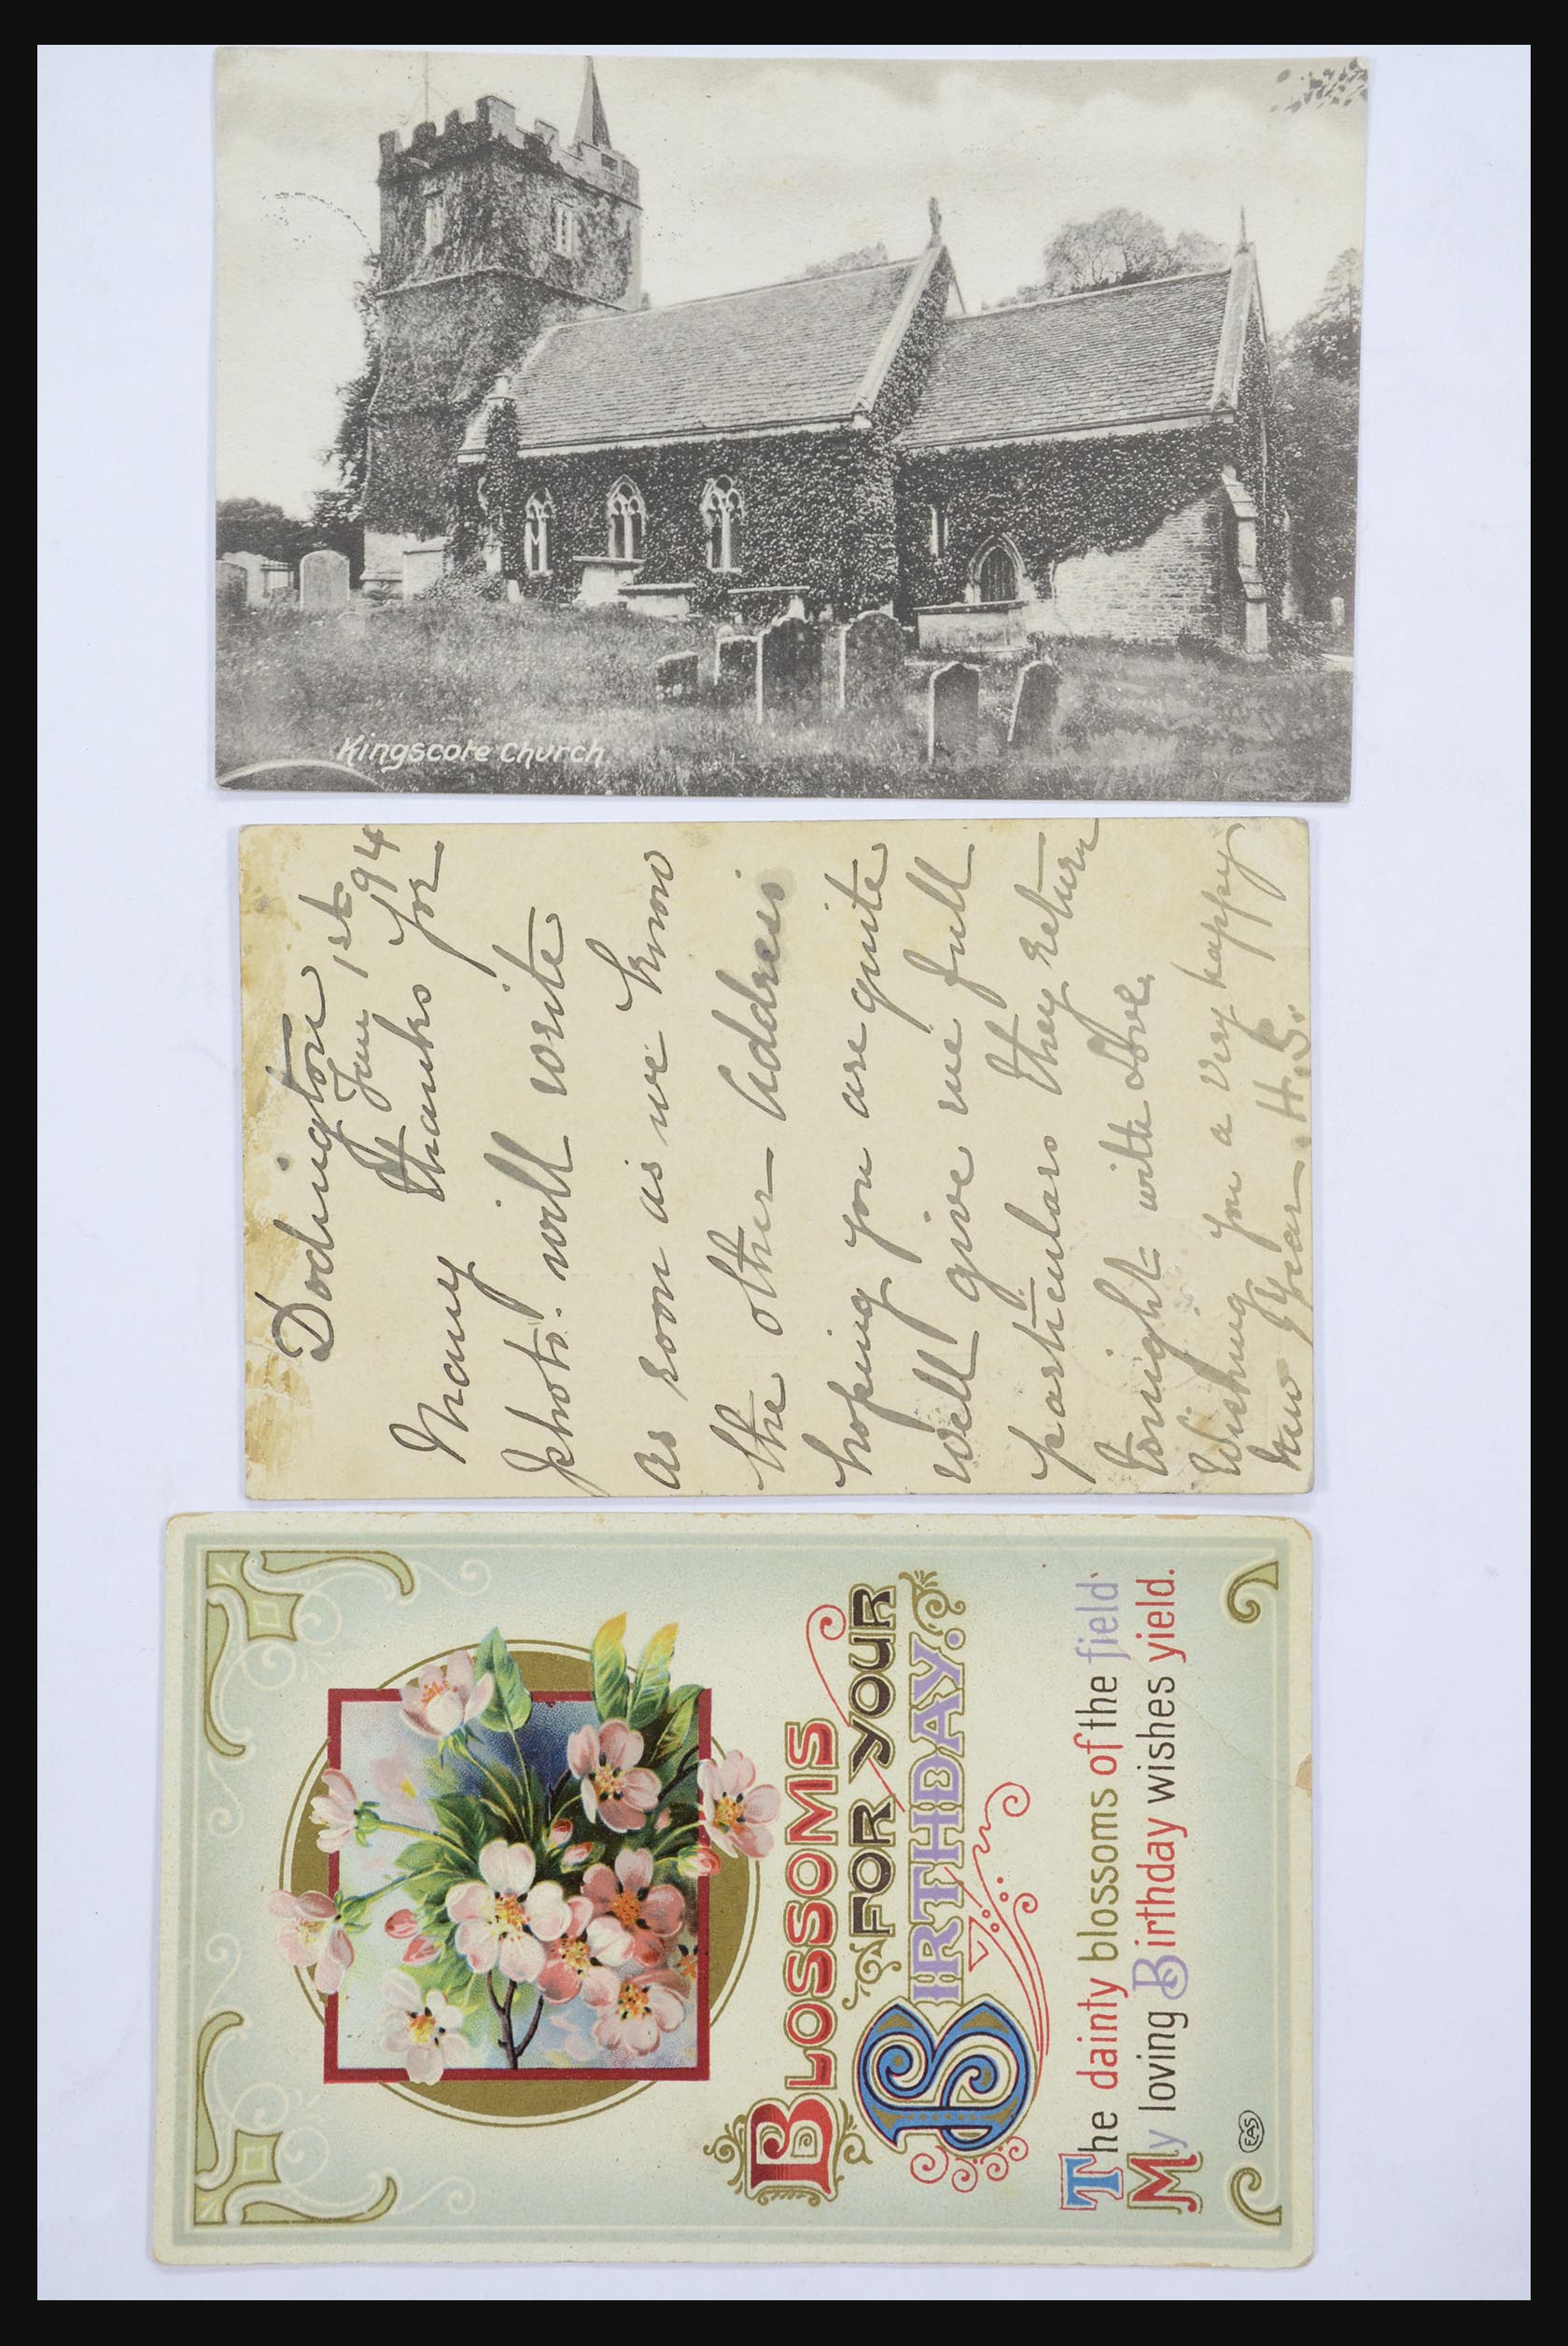 Kingscote Church.
Dodington
Jan 1st 94
Many thanks for
photo. will write
as soon as we know
the other address
hoping you are quite
well give me full
particulars they return
tonight = with love.
Wishing you a very happy
new year. H.S.
BLOSSOMS
FOR YOUR
BIRTHDAY.
The dainty blossoms of the field
My loving Birthday wishes yield.
EAS